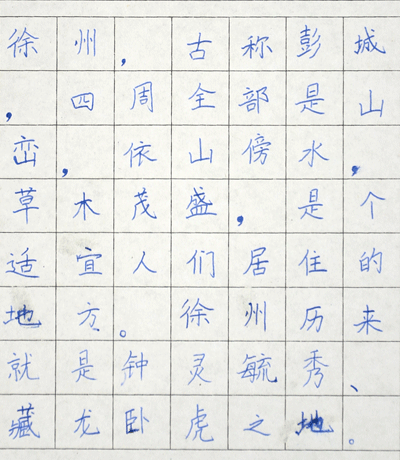 徐州，古称彭城
，四周全部是山
峦，依山傍水，
草木茂盛，是个
适宜人们居住的
地方。徐州历来
就是钟灵毓秀、
藏龙卧虎之地。